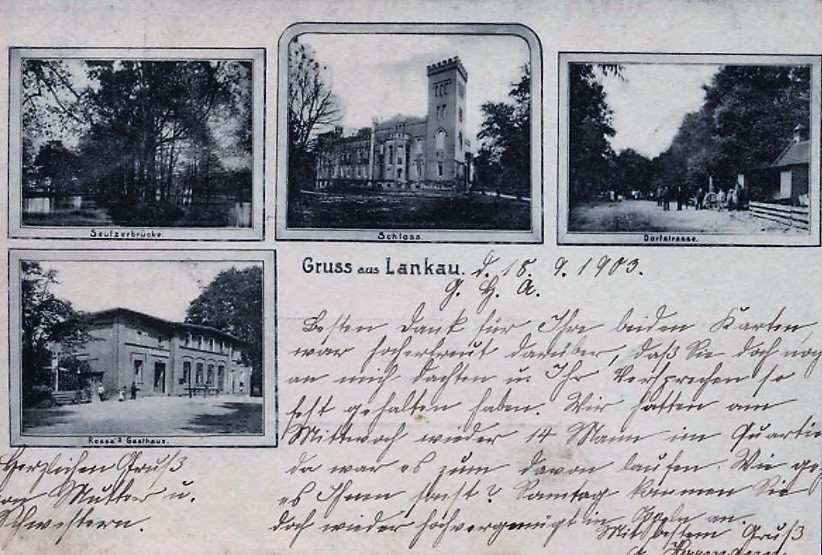 Seutzerbrücke.
Schloss.
Dorfstrasse.
Rossa's Gasthaus.
Gruss aus Lankau. d. 18. 9. 1903.
G. H. A.
Besten Dank für Ihre beiden Karten,
war hocherfreut darüber, daß Sie doch noch
an mich dachten u. Ihr Versprechen so
fest gehalten haben. Wir hatten am
Mittwoch wieder 14 Mann im Quartie
da war es zum davon laufen. Wie ge
es Ihnen sonst? Sonntag kommen Sie
doch wieder hochvergnügt in Oppeln an
Mit bestem Gruß
Herzlichen Gruß
von Mutter u.
Schwestern.